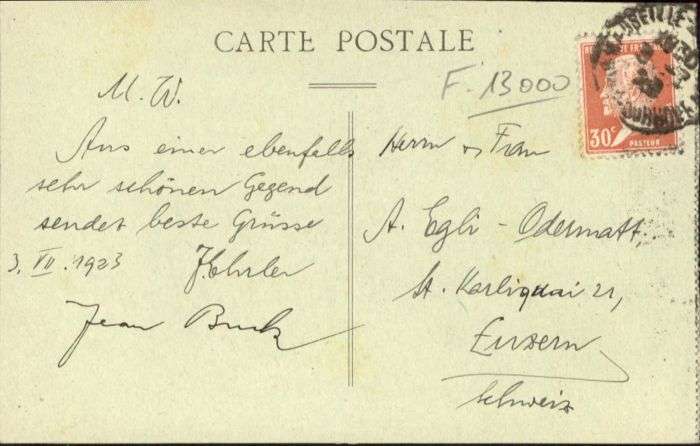 CARTE POSTALE
F. 13000
M. W.
Aus einer ebenfalls
sehr schönen Gegend
sendet beste Grüsse
3. VII. 1923
Jean
Herrn & Frau
A. Egli - Odermatt,
St. Karliquai 21,
Luzern
Schweiz
MARSEILLE
30c
PASTEUR